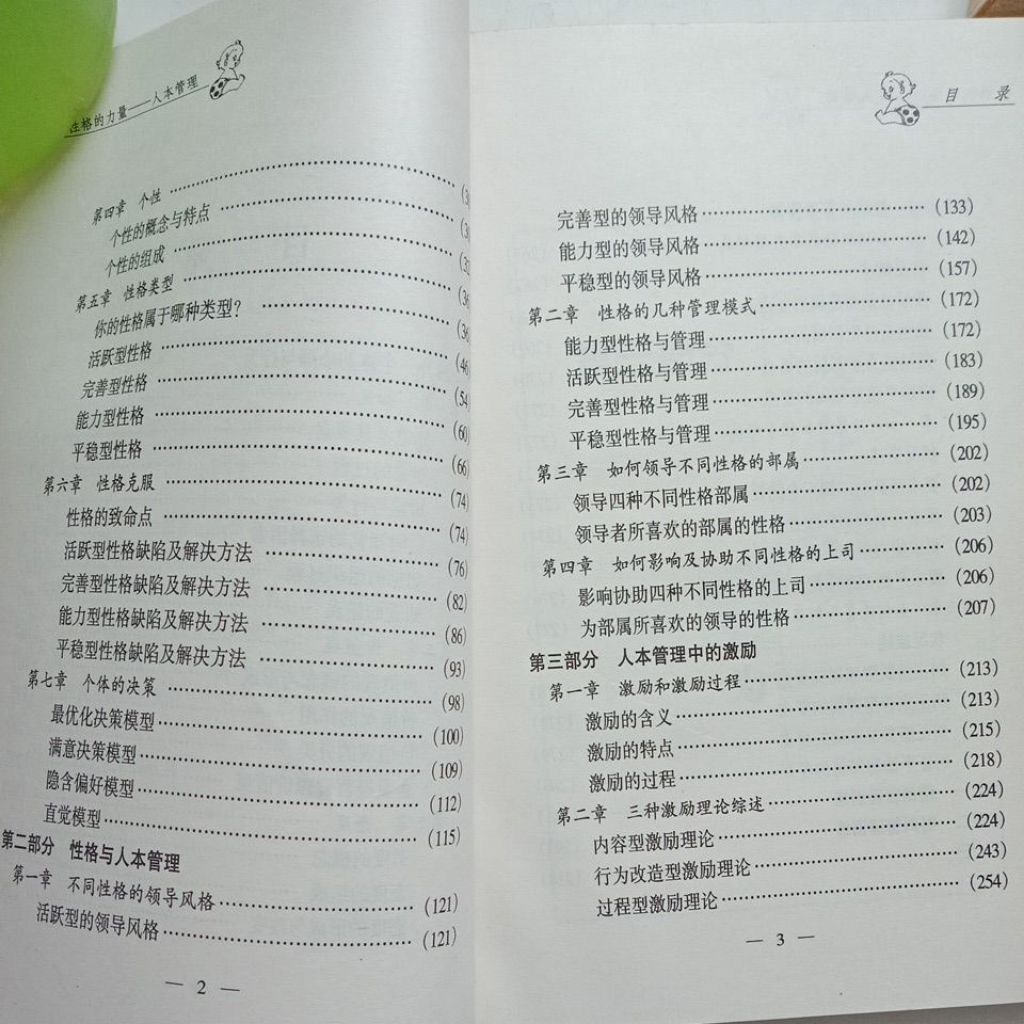 性格的力量——人本管理
第四章 个性
个性的概念与特点
个性的组成
第五章 性格类型
你的性格属于哪种类型？
活跃型性格 (46
完善型性格 (54
能力型性格 (60
平稳型性格 (66
第六章 性格克服 (74
性格的致命点 (74
活跃型性格缺陷及解决方法 (76
完善型性格缺陷及解决方法 (82)
能力型性格缺陷及解决方法 (86)
平稳型性格缺陷及解决方法 (93)
第七章 个体的决策 (98)
最优化决策模型 (100)
满意决策模型 (109)
隐含偏好模型 (112)
直觉模型 (115)
第二部分 性格与人本管理
第一章 不同性格的领导风格 (121)
活跃型的领导风格 (121)
— 2 —
目 录
完善型的领导风格 (133)
能力型的领导风格 (142)
平稳型的领导风格 (157)
第二章 性格的几种管理模式 (172)
能力型性格与管理 (172)
活跃型性格与管理 (183)
完善型性格与管理 (189)
平稳型性格与管理 (195)
第三章 如何领导不同性格的部属 (202)
领导四种不同性格部属 (202)
领导者所喜欢的部属的性格 (203)
第四章 如何影响及协助不同性格的上司 (206)
影响协助四种不同性格的上司 (206)
为部属所喜欢的领导的性格 (207)
第三部分 人本管理中的激励
第一章 激励和激励过程 (213)
激励的含义 (213)
激励的特点 (215)
激励的过程 (218)
第二章 三种激励理论综述 (224)
内容型激励理论 (224)
行为改造型激励理论 (243)
过程型激励理论 (254)
— 3 —